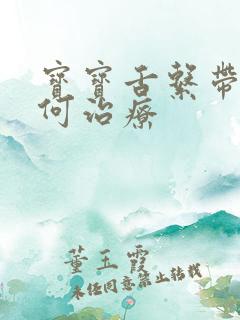 寶寶舌繫帶
何治療
董玉霞
未經同意禁止轉載